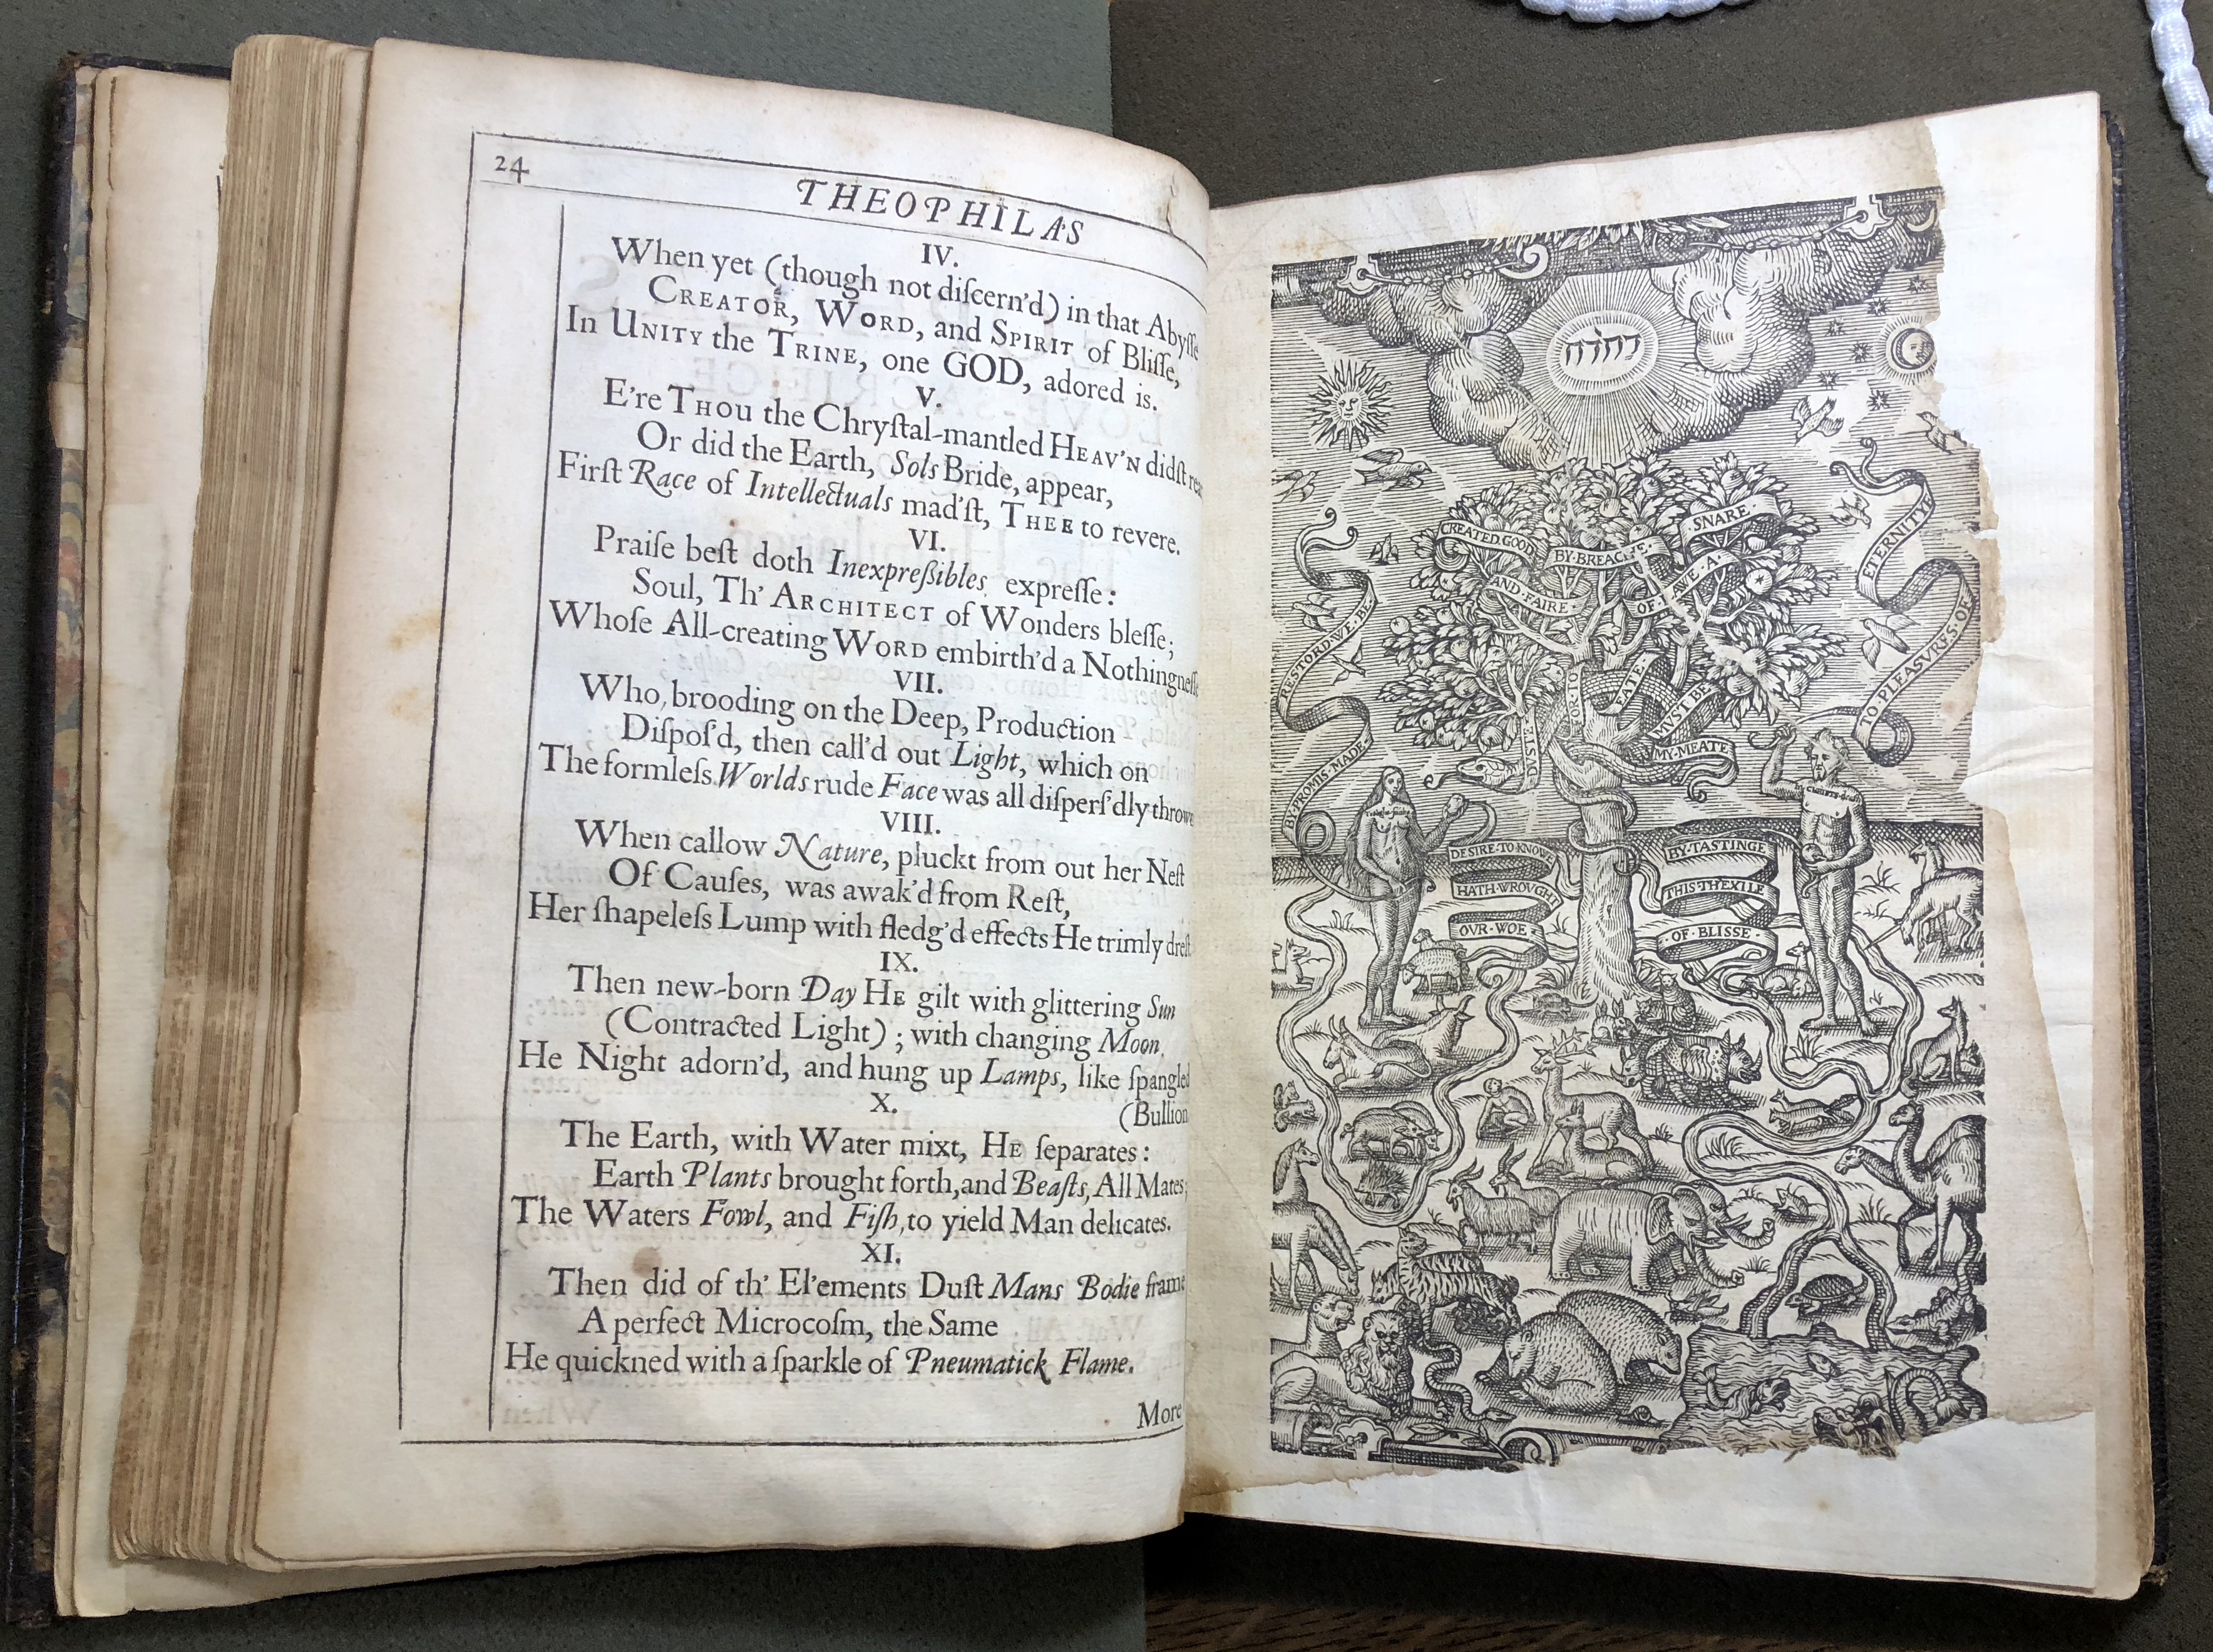 24
THEOPHILAS
IV.
When yet (though not diſcern'd) in that Abyſſe
CREATOR, WORD, and SPIRIT of Bliſſe,
In UNITY the TRINE, one GOD, adored is.
V.
E're THOU the Chryſtal-mantled HEAV'N didſt
Or did the Earth, Sols Bride, appear,
Firſt Race of Intellectuals mad'ſt, THEE to revere.
VI.
Praiſe beſt doth Inexpreſsibles expreſſe:
Soul, Th' ARCHITECT of Wonders bleſſe;
Whoſe All-creating WORD embirth'd a Nothingneſſe
VII.
Who, brooding on the Deep, Production
Diſpoſ'd, then call'd out Light, which on
The formleſs Worlds rude Face was all diſperſ'dly throw
VIII.
When callow Nature, pluckt from out her Neſt
Of Cauſes, was awak'd from Reſt,
Her ſhapeleſs Lump with fledg'd effects He trimly dreſt
IX.
Then new-born Day HE gilt with glittering Sun
(Contracted Light); with changing Moon
He Night adorn'd, and hung up Lamps, like ſpangled
(Bullion
X.
The Earth, with Water mixt, HE ſeparates:
Earth Plants brought forth, and Beaſts, All Mates;
The Waters Fowl, and Fiſh, to yield Man delicates.
XI.
Then did of th' El'ements Duſt Mans Bodie frame
A perfect Microcoſm, the Same
He quickned with a ſparkle of Pneumatick Flame.
More
יהוה
CREATED.GOOD
AND.FAIRE.
BY.BREACHE.
OF.LAWE.A.
SNARE.
RESTORD.WE.BE.
BY.PROMIS.MADE.
ETERNITYE
TO.PLEASVRS.OF
DVST.
FOR.TO
EATE.
MVST.BE
MY.MEATE
DESIRE.TO.KNOW.
HATH.WROVGH
OVR.WOE.
BY.TASTINGE
THIS.TH'EXILE
OF.BLISSE.